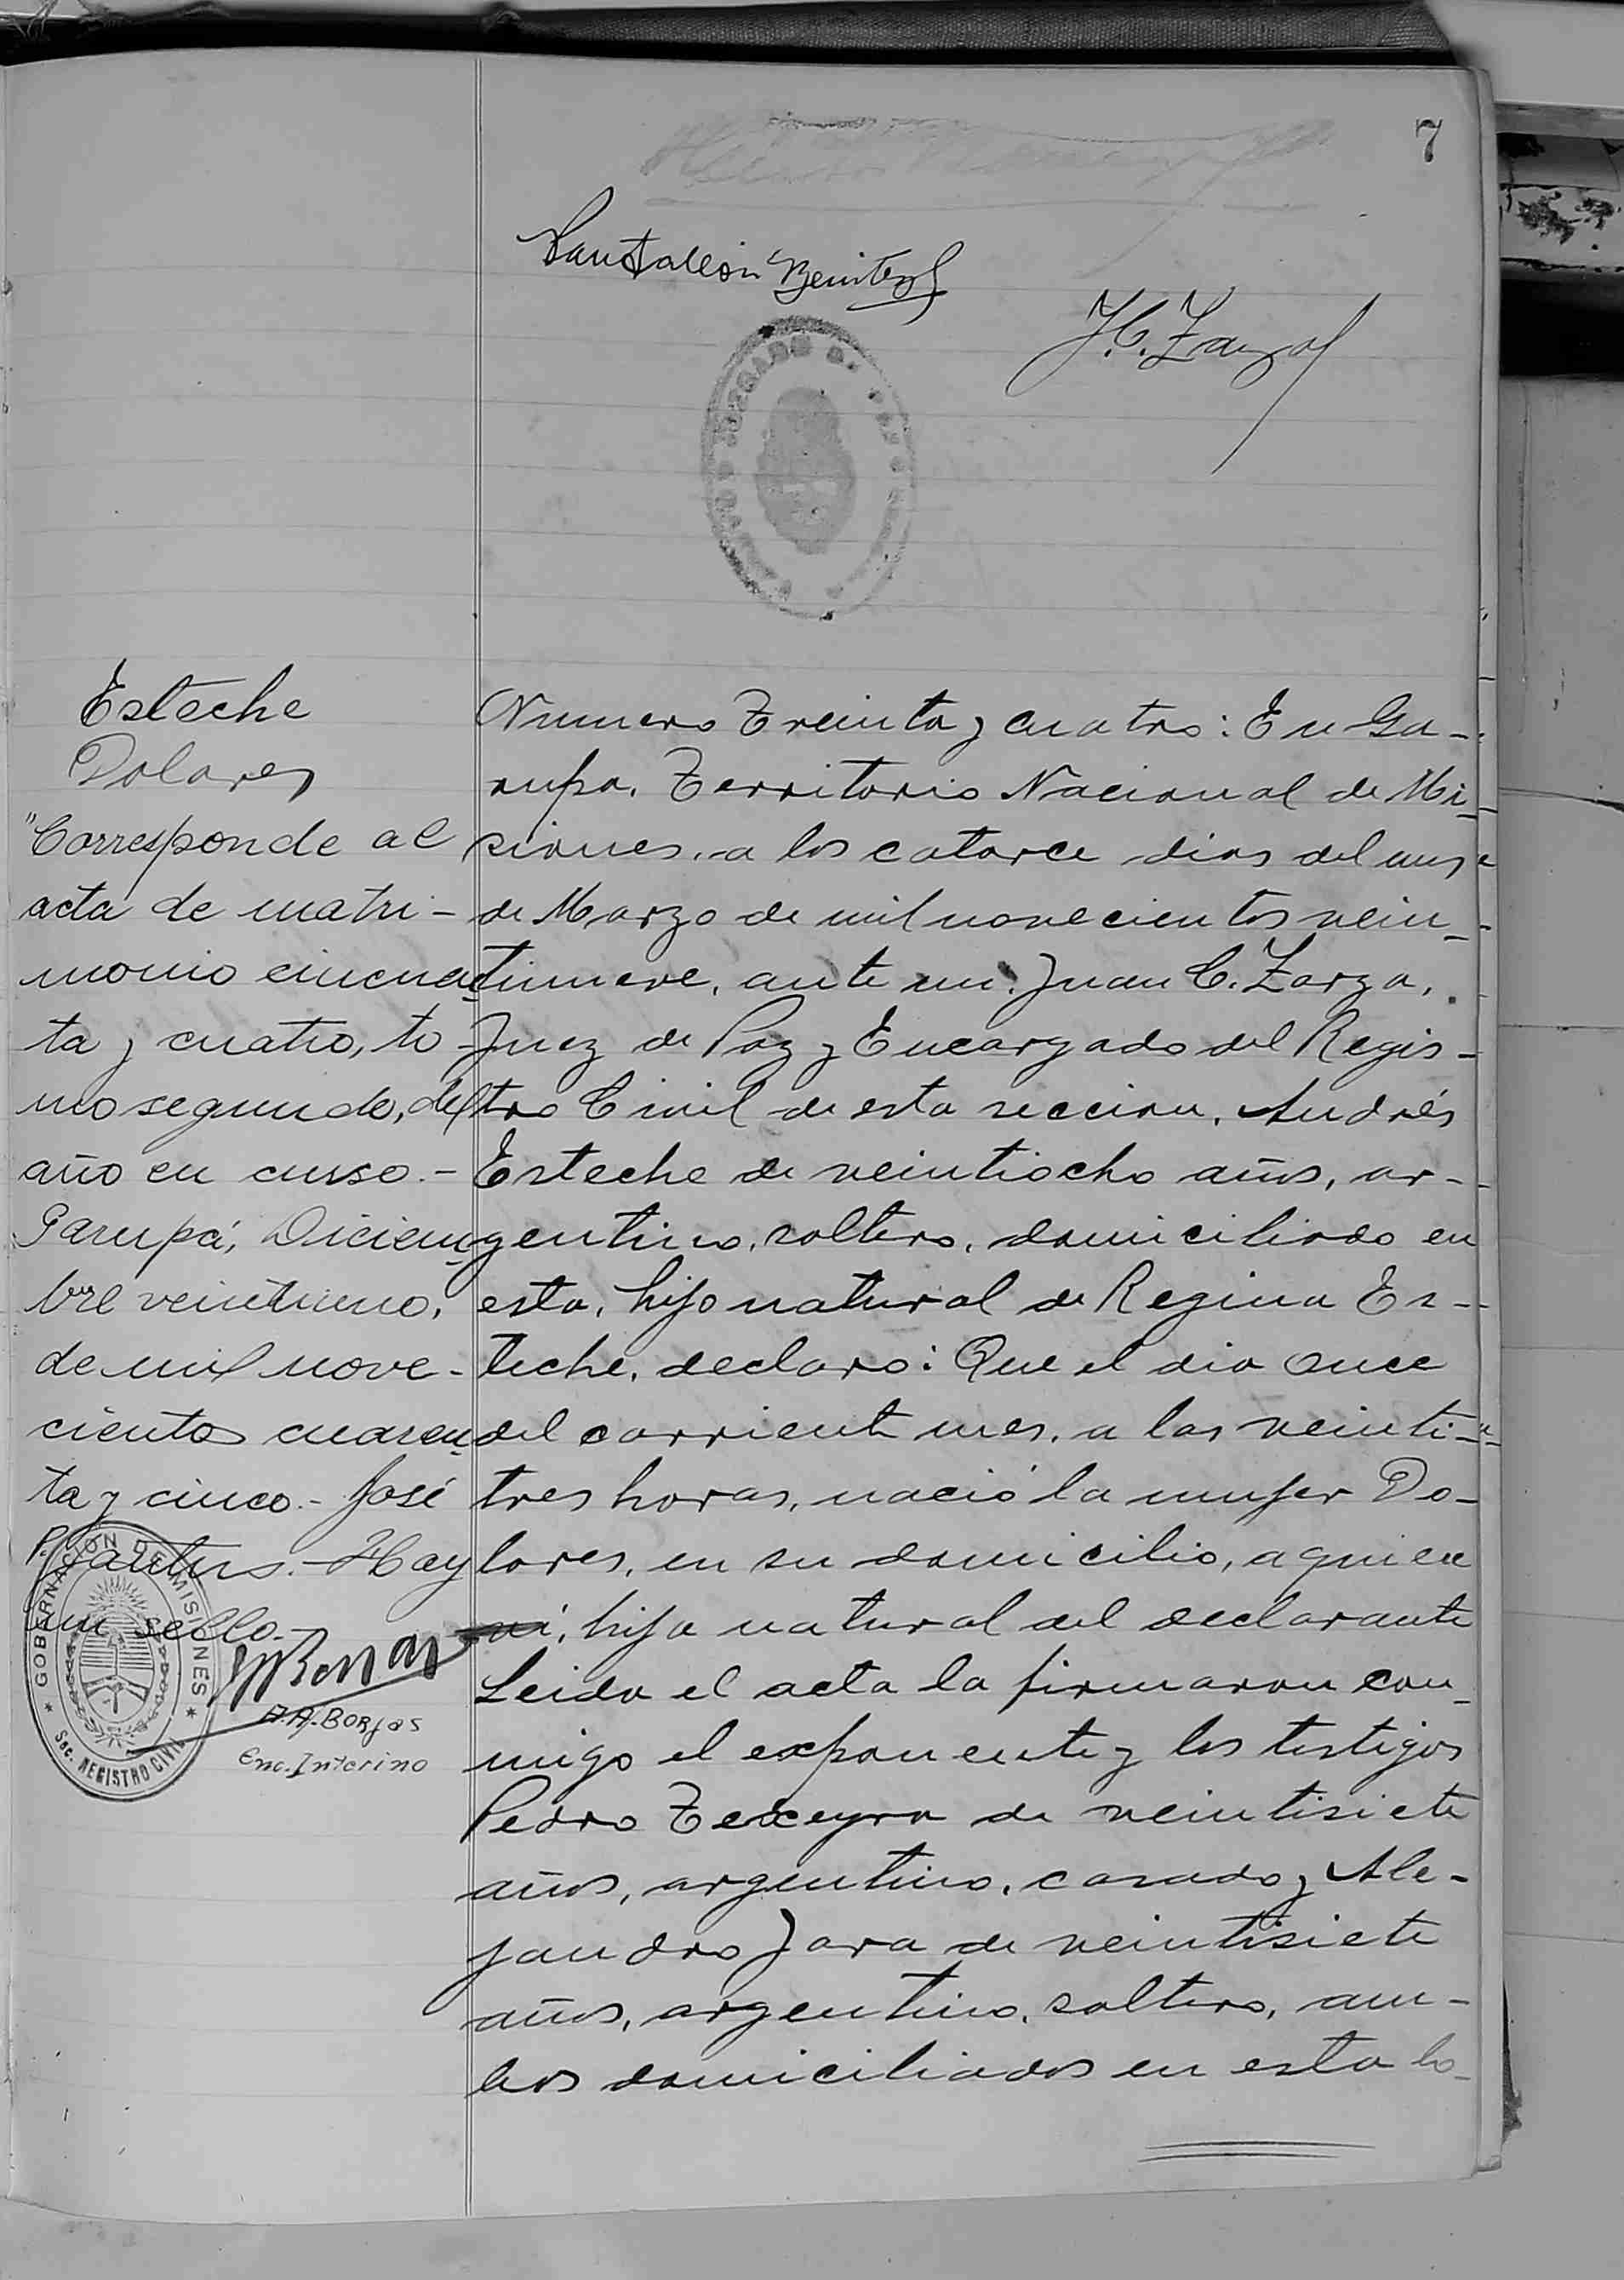 7
Pantaleón Benitez
J. C. Zarza
JUZGADO
Esteche
Dolores
"Corresponde al
acta de matri-
monio cincuen-
ta y cuatro, to-
mo segundo, del
año en curso.-
Garupá, Diciem-
bre veintiuno,
de mil nove-
cientos cuaren-
ta y cinco.- José
P. Hay
un sello.-
GOBERNACIÓN DE MISIONES
Sec. REGISTRO CIVIL
A.A. BORJAS
Enc. Interino
Numero Treinta y cuatro: En Ga-
rupa, Territorio Nacional de Mi-
siones, a los catorce dias del mes
de Marzo de mil novecientos vein-
tinueve, ante mi, Juan C. Zarza,
Juez de Paz y Encargado del Regis-
tro Civil de esta seccion, Andrés
Esteche de veintiocho años, ar-
gentino, soltero, domiciliado en
esta, hijo natural de Regina Es-
teche, declaro: Que el dia once
del corriente mes, a las veinti-
tres horas, nació la mujer Do-
lores, en su domicilio, a quien
vi, hija natural del declarante
Leida el acta la firmaron con-
migo el exponente y los testigos
Pedro Texeyra de veintisiete
años, argentino, casado y Ale-
jandro Jara de veintisiete
años, argentino, soltero, am-
bos domiciliados en esta lo-